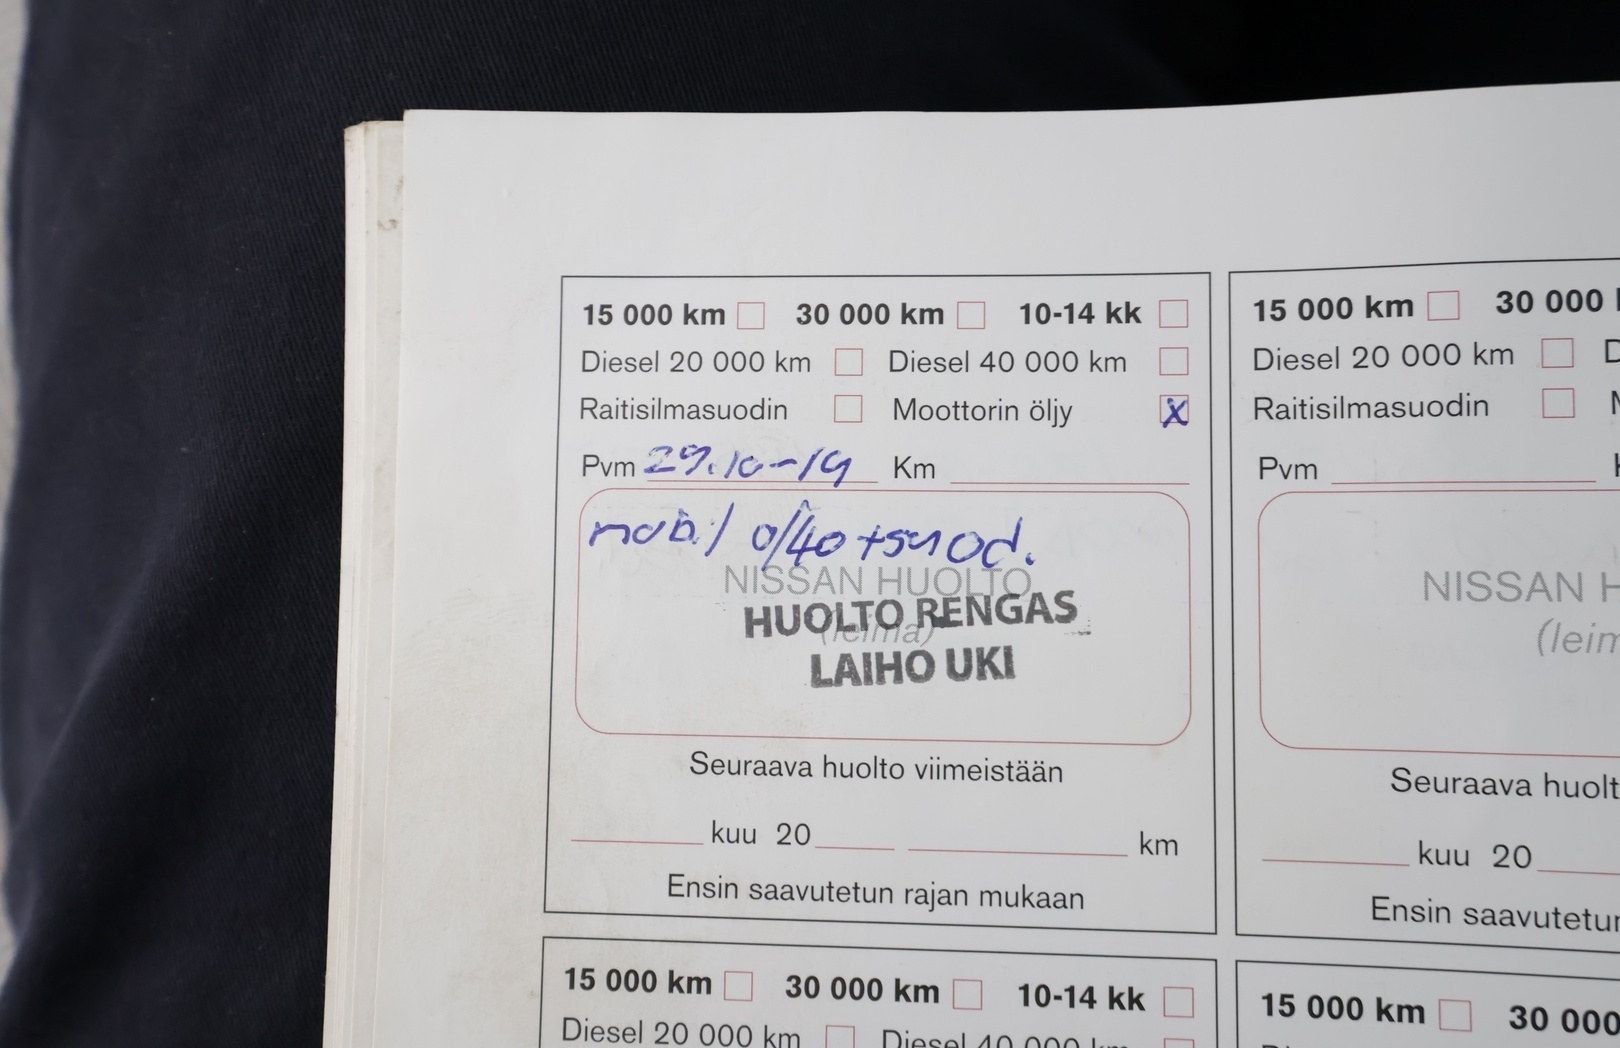 15 000 km 30 000 km 10-14 kk
Diesel 20 000 km Diesel 40 000 km
Raitisilmasuodin Moottorin öljy X
Pvm 29.10-19 Km
mobil 0/40 +suod.
NISSAN HUOLTO
(leima)
HUOLTO RENGAS
LAIHO UKI
Seuraava huolto viimeistään
kuu 20 km
Ensin saavutetun rajan mukaan
15 000 km 30 000
Diesel 20 000 km D
Raitisilmasuodin
Pvm
NISSAN H
(leim
Seuraava huolt
kuu 20
Ensin saavutetu
15 000 km 30 000 km 10-14 kk
Diesel 20 000 km Diesel 40 000 km
15 000 km 30 000